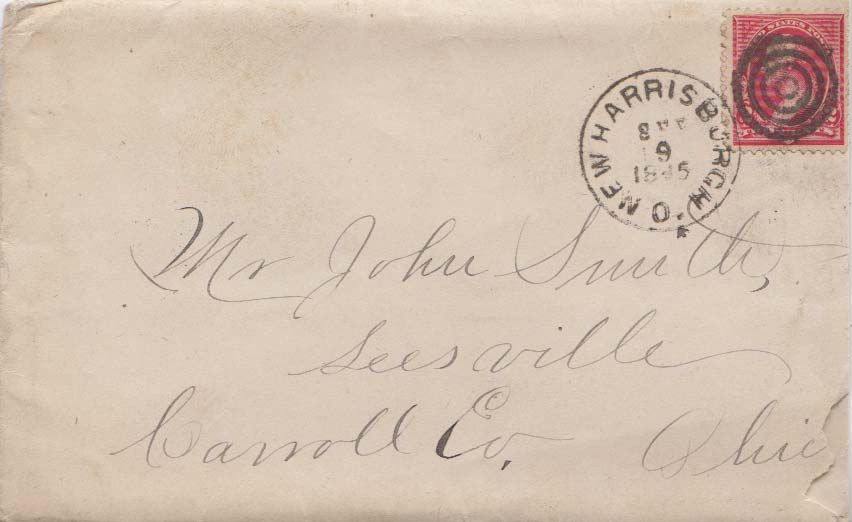 NEW HARRISBURGH, O.
SEP
9
1895
Mr John Smith,
Leesville
Carroll Co. Ohio